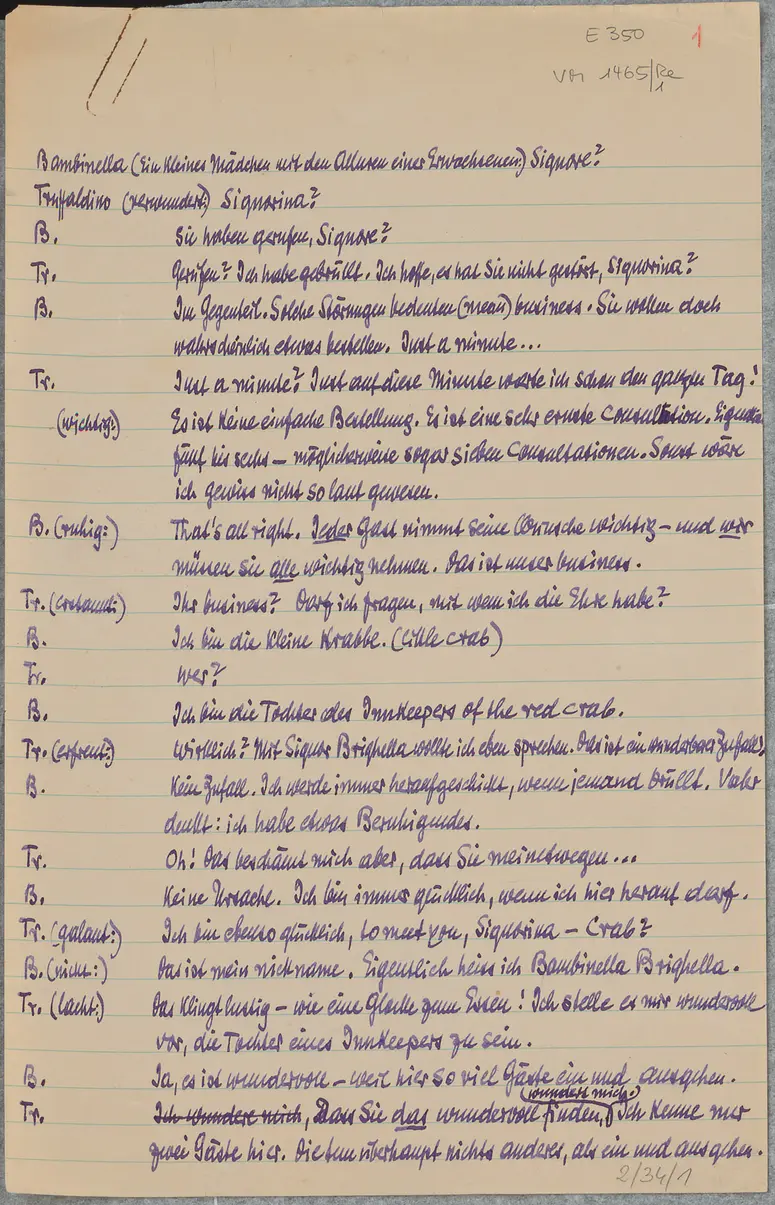 E 350 1
Von 1465/Re/1
Bambinella (Ein kleines Mädchen mit den Alluren einer Erwachsenen:) Signore?
Truffaldino (verwundert:) Signorina?
B. Sie haben gerufen, Signore?
Tr. Gerufen? Ich habe gebrüllt. Ich hoffe, es hat Sie nicht gestört, Signorina?
B. Im Gegenteil. Solche Störungen bedeuten (mean) business. Sie wollen doch
wahrscheinlich etwas bestellen. Just a minute...
Tr. Just a minute? Just auf diese Minute warte ich schon den ganzen Tag!
(wichtig:) Es ist keine einfache Bestellung. Es ist eine sehr ernste Consultation. Eigentlich
fünf bis sechs – möglicherweise sogar sieben Consultationen. Sonst wäre
ich gewiss nicht so laut gewesen.
B. (ruhig:) That's all right. Jeder Gast nimmt seine Wünsche wichtig – und wir
müssen sie alle wichtig nehmen. Das ist unser business.
Tr. (erstaunt:) Ihr business? Darf ich fragen, mit wem ich die Ehre habe?
B. Ich bin die kleine Krabbe. (little crab)
Tr. Wer?
B. Ich bin die Tochter des Innkeepers of the red crab.
Tr. (erfreut:) Wirklich? Mit Signor Brighella wollte ich eben sprechen. Das ist ein wunderbarer Zufall!
B. Kein Zufall. Ich werde immer heraufgeschickt, wenn jemand brüllt. Vater
denkt: ich habe etwas Beruhigendes.
Tr. Oh! Das beschämt mich aber, dass Sie meinetwegen...
B. Keine Ursache. Ich bin immer glücklich, wenn ich hier herauf darf.
Tr. (galant:) Ich bin ebenso glücklich, to meet you, Signorina – Crab?
B. (nickt:) Das ist mein nickname. Eigentlich heiss ich Bambinella Brighella.
Tr. (lacht:) Das klingt lustig – wie eine Glocke zum Essen! Ich stelle es mir wundervoll
vor, die Tochter eines Innkeepers zu sein.
B. Ja, es ist wundervoll – weil hier so viel Gäste ein und ausgehen.
(wundert mich.)
Tr. Ich wundere mich, Dass Sie das wundervoll finden, Ich kenne nur
zwei Gäste hier. Die tun überhaupt nichts anderes, als ein und ausgehen.
2/34/1